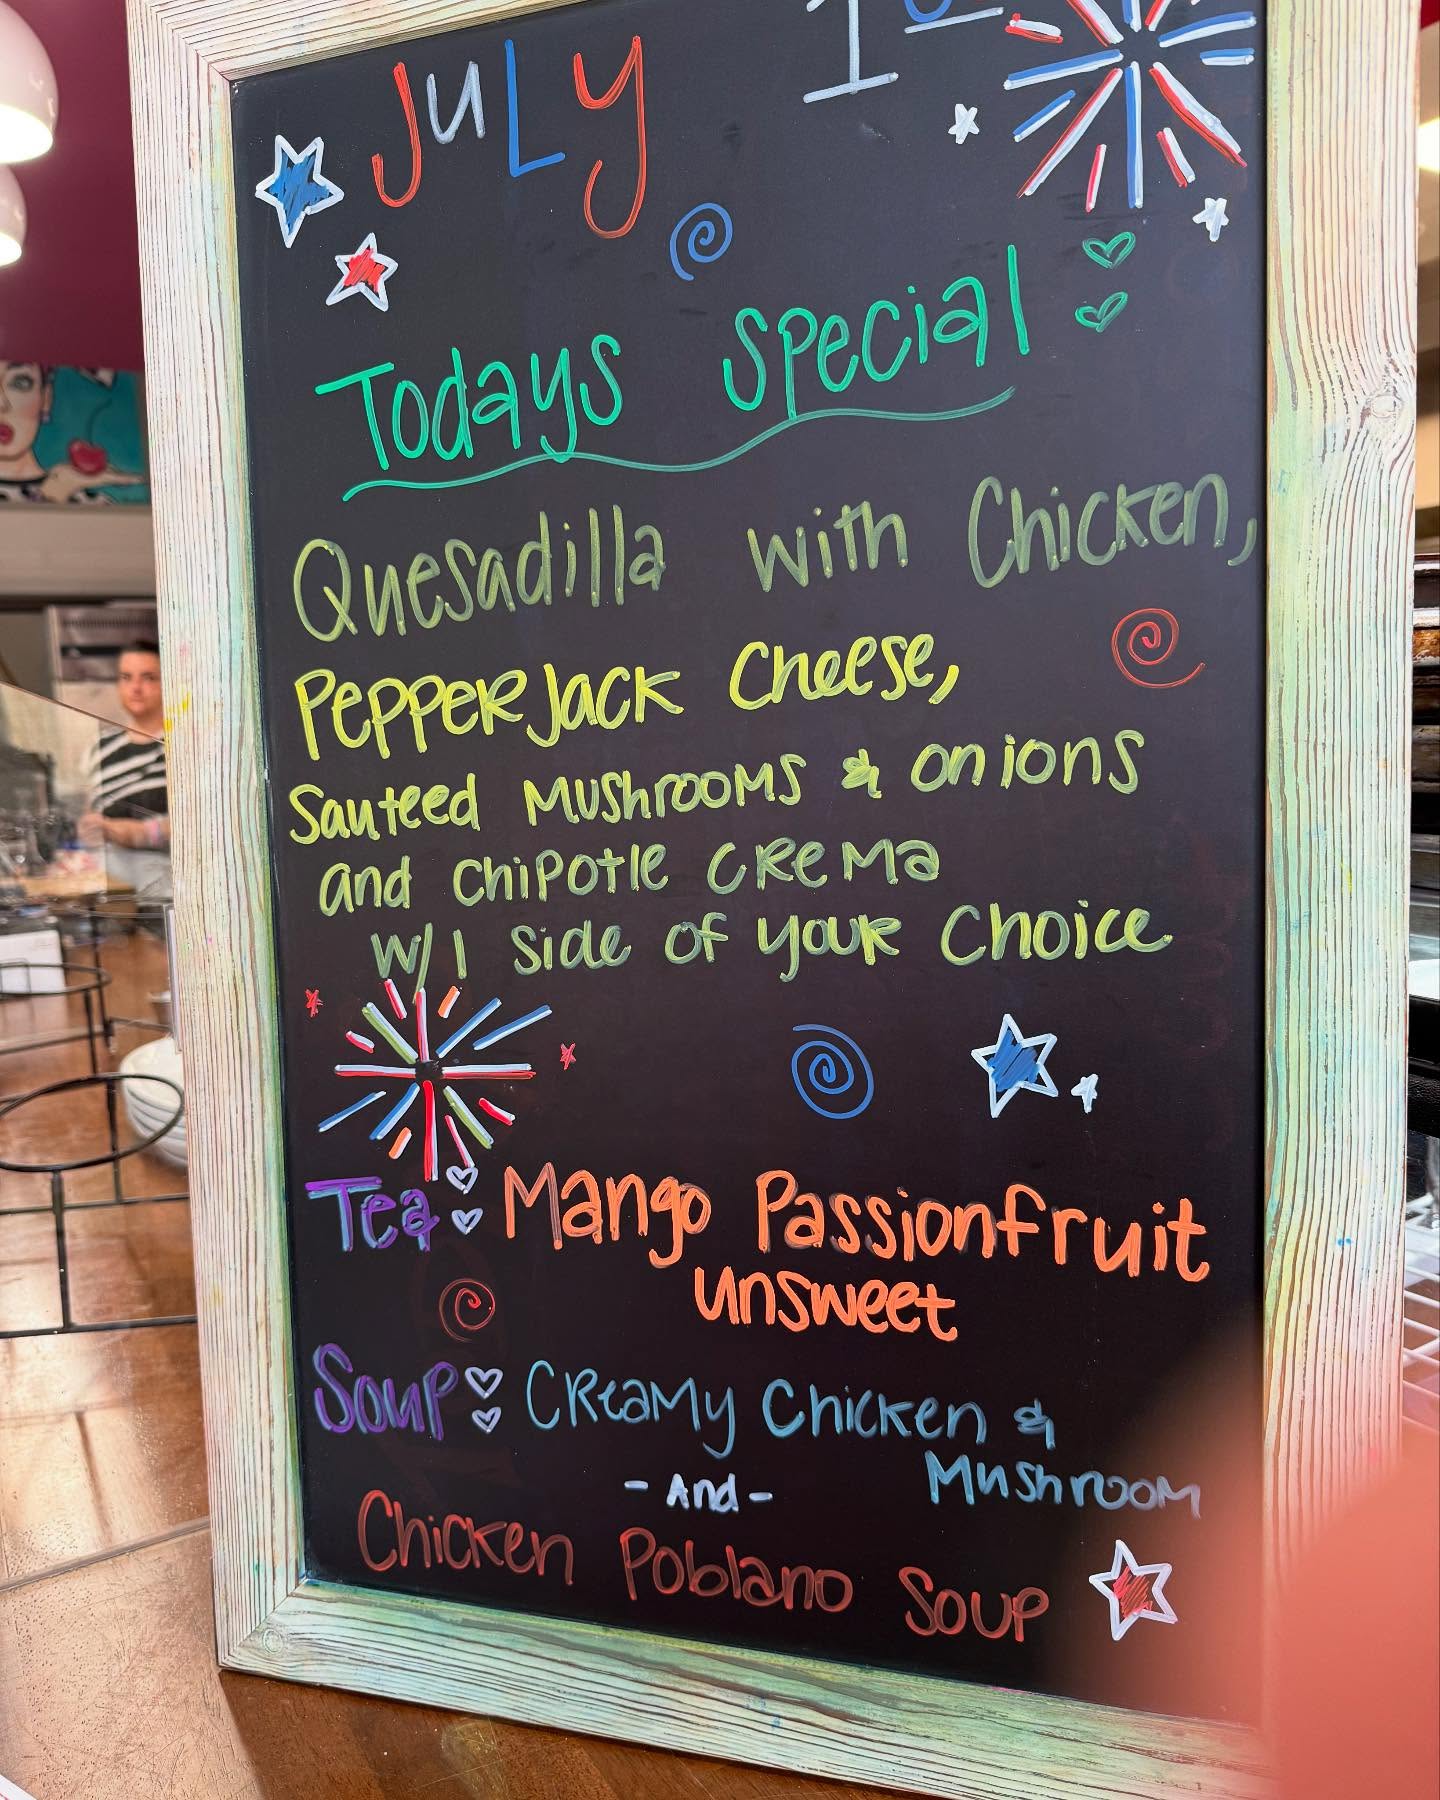 July 1
Todays Special:
Quesadilla with Chicken,
PepperJack Cheese,
Sauteed Mushrooms & onions
and Chipotle Crema
W/ 1 side of your Choice
Tea: Mango Passionfruit
unsweet
Soup: Creamy Chicken &
Mushroom
- And -
Chicken Poblano Soup